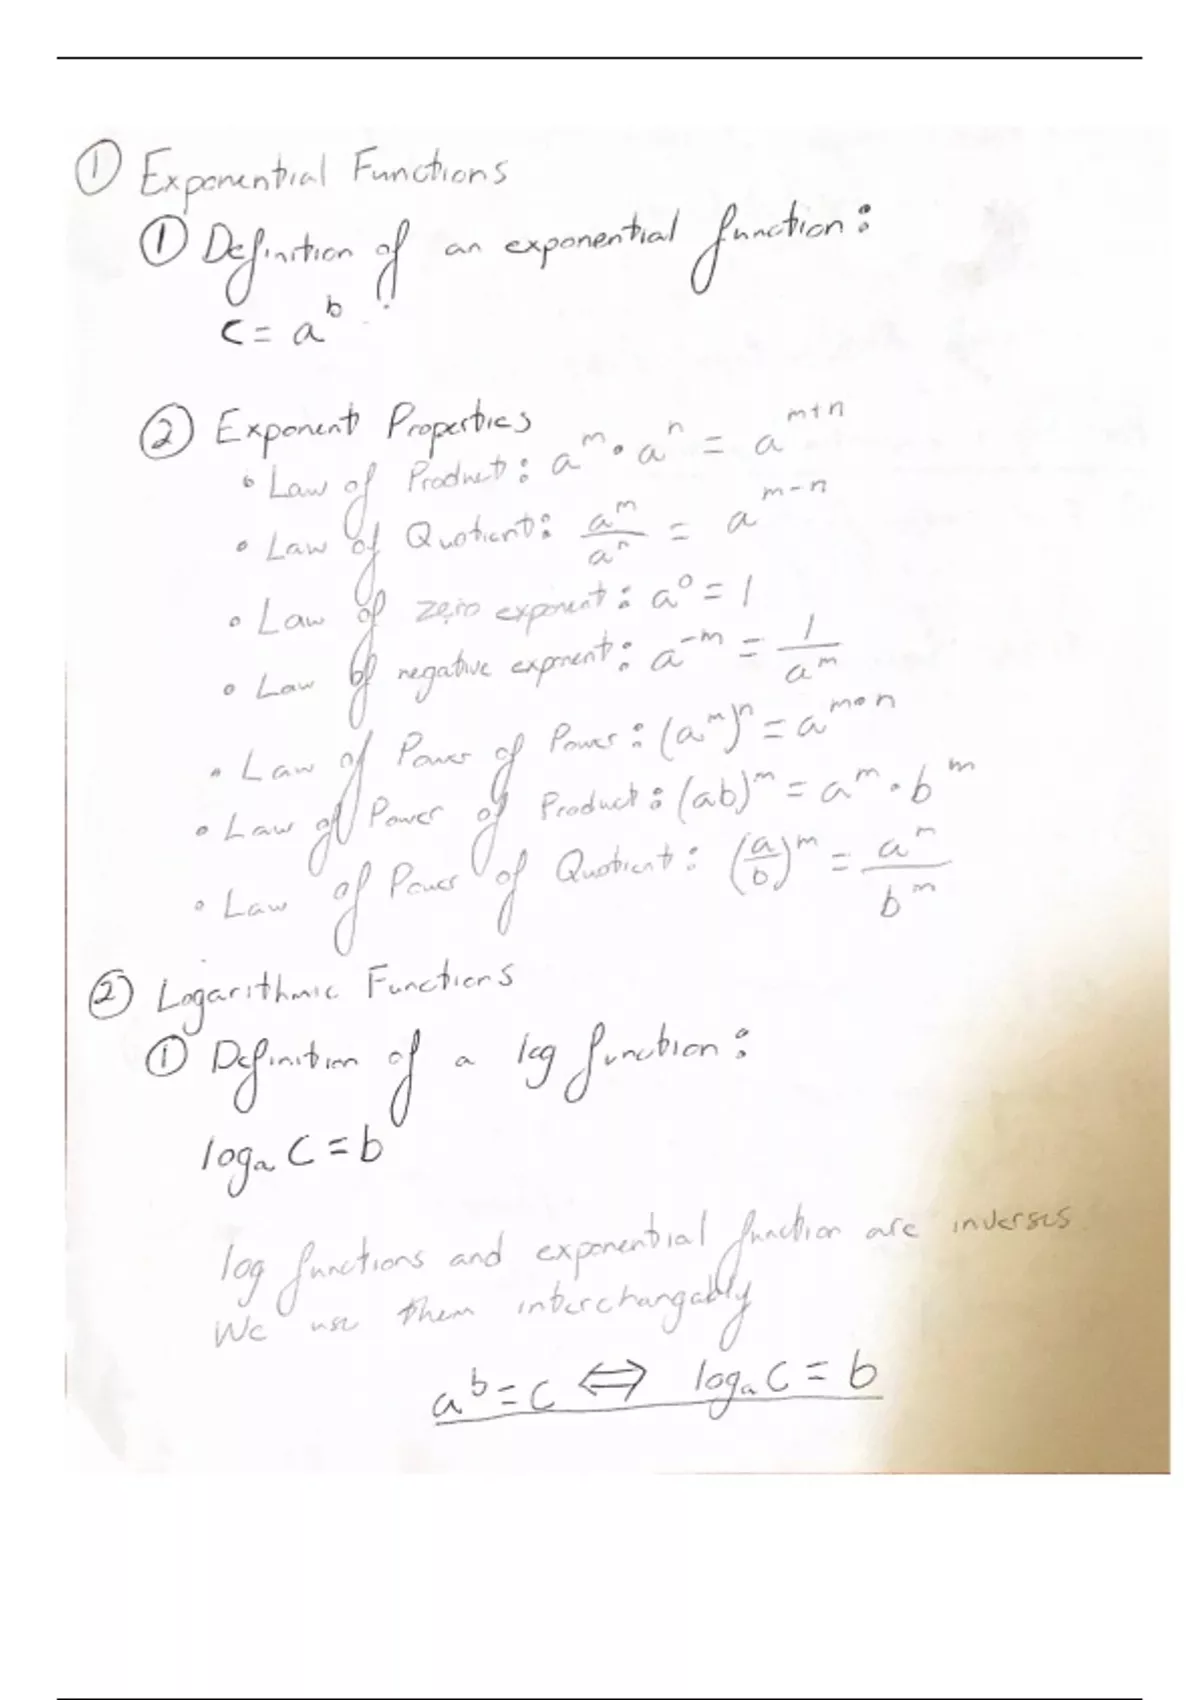 ① Exponential Functions
① Definition of an exponential function:
c = a^b
② Exponent Properties
• Law of Product: a^m • a^n = a^(m+n)
• Law of Quotient: a^m / a^n = a^(m-n)
• Law of zero exponent: a^0 = 1
• Law of negative exponent: a^(-m) = 1 / a^m
• Law of Power of Power: (a^m)^n = a^(m•n)
• Law of Power of Product: (ab)^m = a^m • b^m
• Law of Power of Quotient: (a/b)^m = a^m / b^m
② Logarithmic Functions
① Definition of a log function:
log_a C = b
log functions and exponential function are inverses
We use them interchangably
a^b = c ⟺ log_a C = b